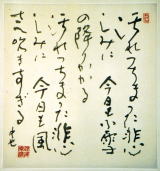 汚れつちまつた悲
しみに 今日も小雪
の降りかかる
汚れつちまつた悲
しみに 今日も風
さへ吹きすぎる